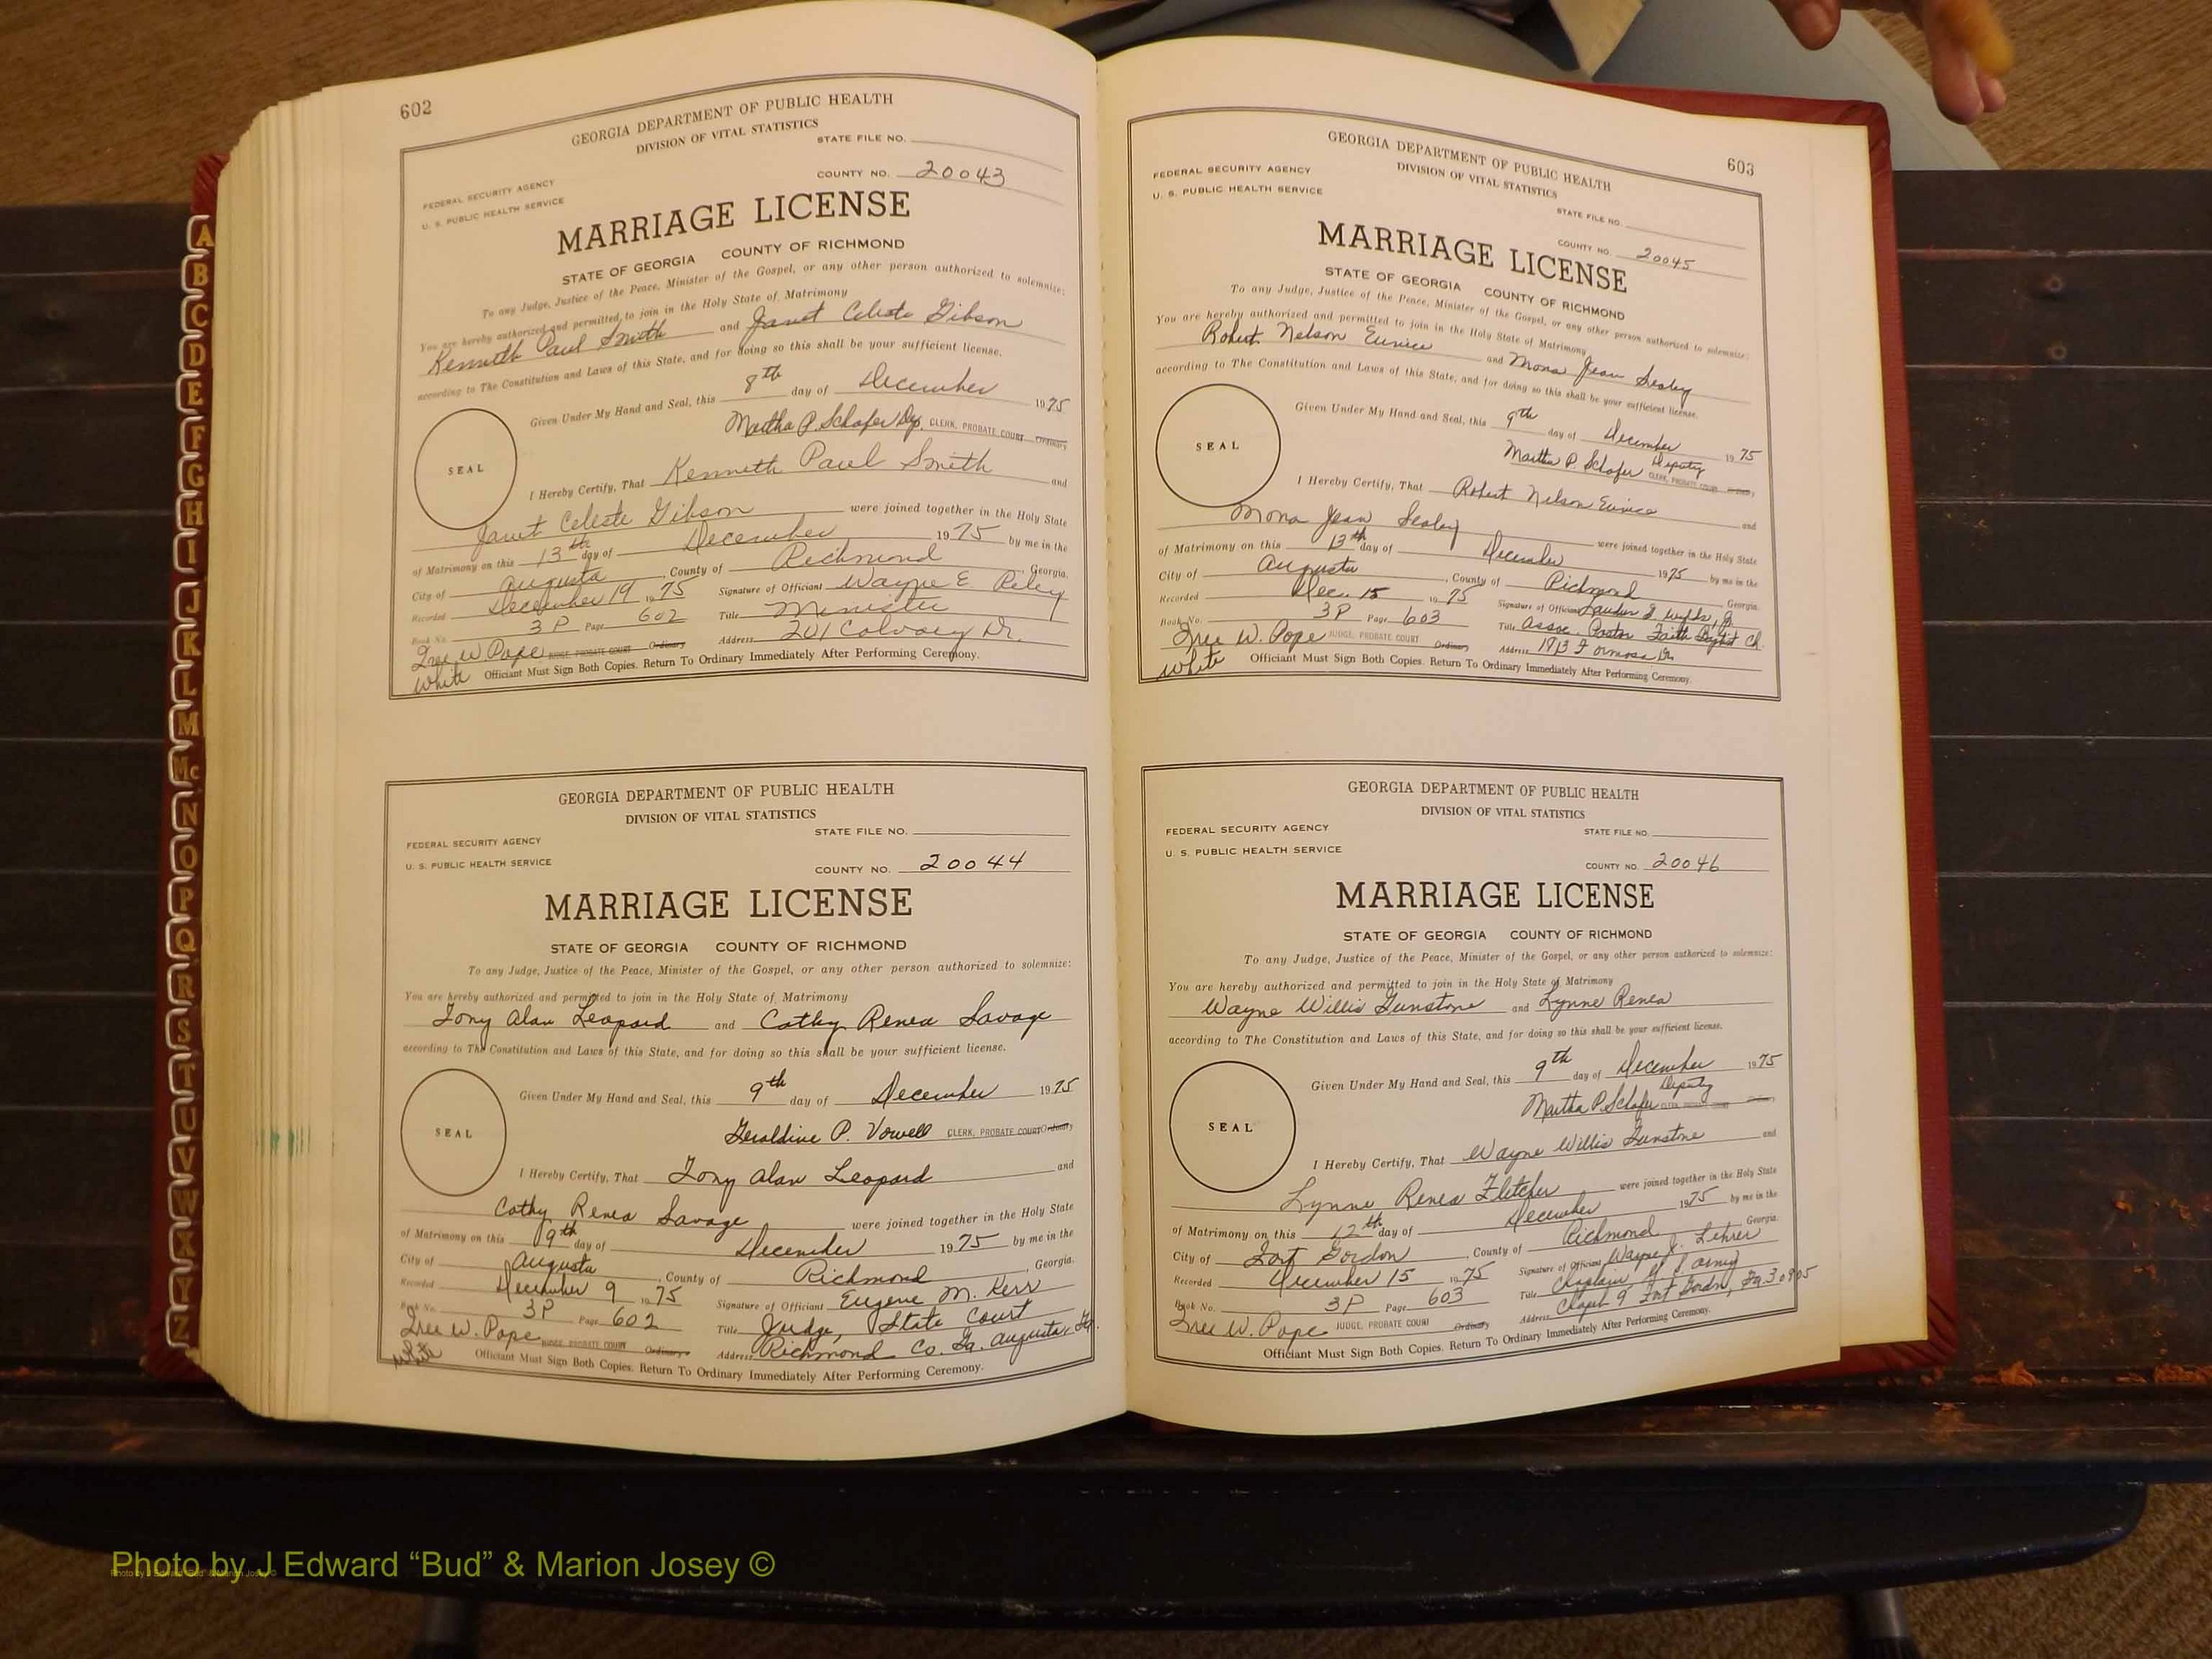 602
GEORGIA DEPARTMENT OF PUBLIC HEALTH
DIVISION OF VITAL STATISTICS
STATE FILE NO.
FEDERAL SECURITY AGENCY
U. S. PUBLIC HEALTH SERVICE
COUNTY NO. 20043
MARRIAGE LICENSE
STATE OF GEORGIA COUNTY OF RICHMOND
To any Judge, Justice of the Peace, Minister of the Gospel, or any other person authorized to solemnize:
You are hereby authorized and permitted to join in the Holy State of Matrimony
Kenneth Paul Smith and Janet Celeste Gibson
according to The Constitution and Laws of this State, and for doing so this shall be your sufficient license.
Given Under My Hand and Seal, this 8th day of December 1975
Martha P. Schafer Dep. CLERK, PROBATE COURT Ordinary
SEAL
I Hereby Certify, That Kenneth Paul Smith and
Janet Celeste Gibson were joined together in the Holy State
of Matrimony on this 13th day of December 1975 by me in the
City of Augusta, County of Richmond Georgia.
Recorded December 19 1975 Signature of Officiant Wayne E Riley
Book No. 3P Page 602 Title Minister
Iree W. Pope JUDGE, PROBATE COURT Ordinary Address 201 Calvary Dr.
White Officiant Must Sign Both Copies. Return To Ordinary Immediately After Performing Ceremony.
GEORGIA DEPARTMENT OF PUBLIC HEALTH
DIVISION OF VITAL STATISTICS
STATE FILE NO.
FEDERAL SECURITY AGENCY
U. S. PUBLIC HEALTH SERVICE
COUNTY NO. 20044
MARRIAGE LICENSE
STATE OF GEORGIA COUNTY OF RICHMOND
To any Judge, Justice of the Peace, Minister of the Gospel, or any other person authorized to solemnize:
You are hereby authorized and permitted to join in the Holy State of Matrimony
Tony Alan Leopard and Cathy Renea Savage
according to The Constitution and Laws of this State, and for doing so this shall be your sufficient license.
Given Under My Hand and Seal, this 9th day of December 1975
Geraldine P. Vowell CLERK, PROBATE COURT Ordinary
SEAL
I Hereby Certify, That Tony Alan Leopard and
Cathy Renea Savage were joined together in the Holy State
of Matrimony on this 9th day of December 1975 by me in the
City of Augusta, County of Richmond, Georgia.
Recorded December 9 1975 Signature of Officiant Eugene M. Kerr
Book No. 3P Page 602 Title Judge, State Court
Iree W. Pope JUDGE, PROBATE COURT Ordinary Address Richmond Co. Ga. Augusta, Ga.
White Officiant Must Sign Both Copies. Return To Ordinary Immediately After Performing Ceremony.
603
GEORGIA DEPARTMENT OF PUBLIC HEALTH
DIVISION OF VITAL STATISTICS
FEDERAL SECURITY AGENCY
U. S. PUBLIC HEALTH SERVICE
STATE FILE NO.
COUNTY NO. 20045
MARRIAGE LICENSE
STATE OF GEORGIA COUNTY OF RICHMOND
To any Judge, Justice of the Peace, Minister of the Gospel, or any other person authorized to solemnize:
You are hereby authorized and permitted to join in the Holy State of Matrimony
Robert Nelson Eunice and Mona Jean Sealey
according to The Constitution and Laws of this State, and for doing so this shall be your sufficient license.
Given Under My Hand and Seal, this 9th day of December 1975
Martha P. Schafer Deputy CLERK, PROBATE COURT Ordinary
SEAL
I Hereby Certify, That Robert Nelson Eunice and
Mona Jean Sealey were joined together in the Holy State
of Matrimony on this 13th day of December 1975 by me in the
City of Augusta, County of Richmond Georgia.
Recorded Dec. 15 1975 Signature of Officiant
Book No. 3P Page 603 Title Assoc. Pastor Faith Baptist Ch.
Iree W. Pope JUDGE, PROBATE COURT Ordinary Address 1913 Formosa Dr.
White Officiant Must Sign Both Copies. Return To Ordinary Immediately After Performing Ceremony.
GEORGIA DEPARTMENT OF PUBLIC HEALTH
DIVISION OF VITAL STATISTICS
FEDERAL SECURITY AGENCY
STATE FILE NO.
U. S. PUBLIC HEALTH SERVICE
COUNTY NO. 20046
MARRIAGE LICENSE
STATE OF GEORGIA COUNTY OF RICHMOND
To any Judge, Justice of the Peace, Minister of the Gospel, or any other person authorized to solemnize:
You are hereby authorized and permitted to join in the Holy State of Matrimony
Wayne Willis Gunstone and Lynne Renea
according to The Constitution and Laws of this State, and for doing so this shall be your sufficient license.
Given Under My Hand and Seal, this 9th day of December 1975
Martha P. Schafer Deputy CLERK, PROBATE COURT Ordinary
SEAL
I Hereby Certify, That Wayne Willis Gunstone and
Lynne Renea Fletcher were joined together in the Holy State
of Matrimony on this 12th day of December 1975 by me in the
City of Fort Gordon, County of Richmond Georgia.
Recorded December 15 1975 Signature of Officiant Wayne J. Lehrer
Book No. 3P Page 603 Title Chaplain U S Army
Iree W. Pope JUDGE, PROBATE COURT Ordinary Address Chapel 9 Fort Gordon, Ga 30905
Officiant Must Sign Both Copies. Return To Ordinary Immediately After Performing Ceremony.
A
B
C
D
E
F
G
H
I
J
K
L
M
Mc
N
O
P
Q
R
S
T
U
V
W
X
Y
Z
Photo by J Edward “Bud” & Marion Josey ©
Photo by J Edward “Bud” & Marion Josey ©